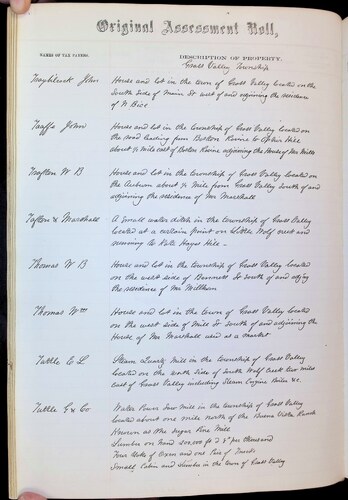 Original Assessment Roll,
NAMES OF TAX PAYERS.
DESCRIPTION OF PROPERTY:
Grass Valley Township
John House and lot in the town of Grass Valley located on the
South side of Main St west of and adjoining the residence
of Rice
Taaffe John House and lot in the township of Grass Valley located on
the Road leading from Boston Ravine to Hill
about 1/4 mile east of Boston Ravine adjoining the House of Mr Mills
W B House and lot in the township of Grass Valley located on
the Auburn about 1/4 mile from Grass Valley south of and
adjoining the residence of Mr Marshall
& Marshall A Small water ditch in the township of Grass Valley
located at a certain point on Little Wolf creek and
running to Hill
Thomas W B House and lot in the town of Grass Valley located
on the west side of Bennett St South of and
the residence of Mr
Thomas Wm House and lot in the town of Grass Valley located
on the west side of Mill St south of and adjoining the
House of Mr Marshall used as a market
Tuttle C L Steam Quartz Mill in the township of Grass Valley
Located on the north side of south Wolf Creek two miles
east of Grass Valley including Steam Engine Boiler &c.
Tuttle G & Co Water Power Saw Mill in the township of Grass Valley
located about one mile north of the Buena Vista Ranch
Known as the Sugar Pine Mill
Lumber on hand 200,000 ft per thousand
Four Yoke of Oxen and one Pair of Trucks
Small Cabin and Lumber in the town of Grass Valley